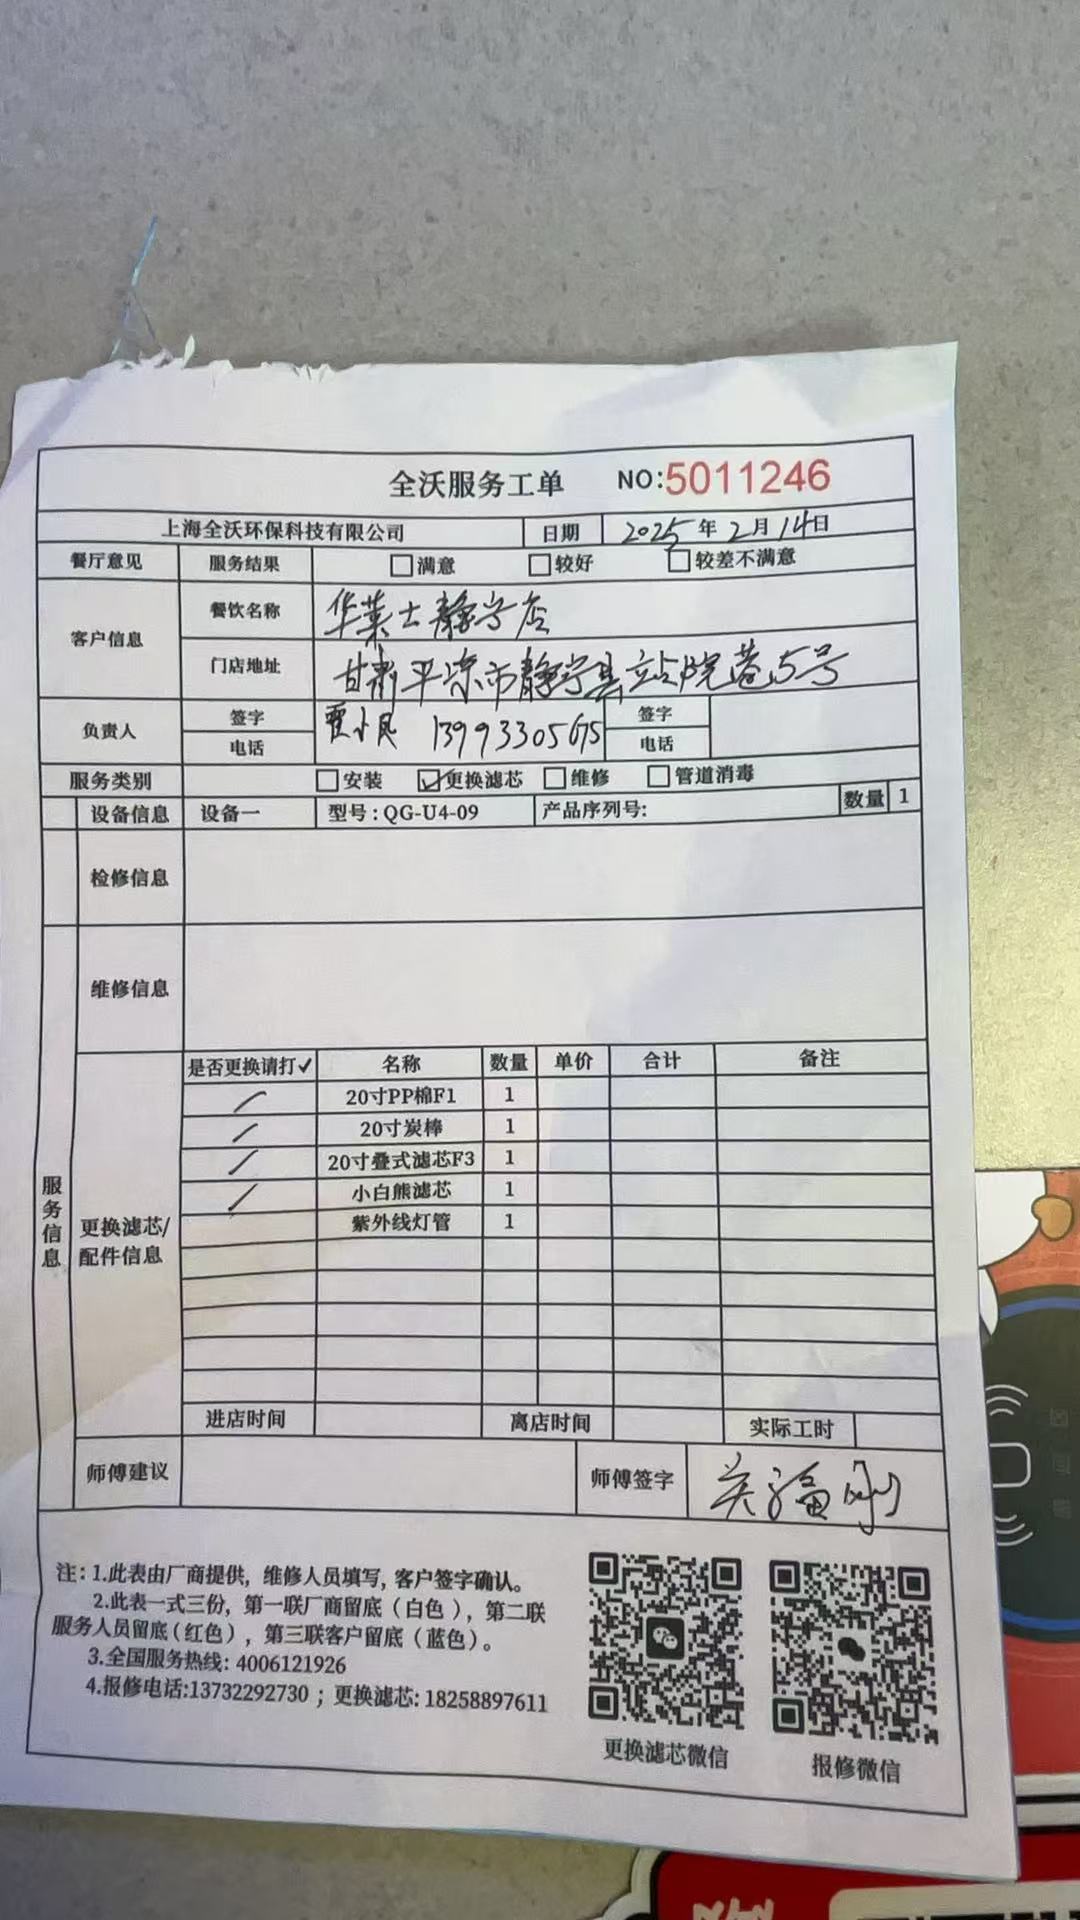 全沃服务工单 NO:5011246
上海全沃环保科技有限公司 日期 2025年2月14日
餐厅意见 服务结果 满意 较好 较差不满意
客户信息 餐饮名称 华莱士静宁店
门店地址 甘肃平凉市静宁县站院巷5号
负责人 签字 小凤 13993305675 签字
电话 电话
服务类别 安装 更换滤芯 维修 管道消毒
设备信息 设备一 型号:QG-U4-09 产品序列号: 数量 1
检修信息
维修信息
服务信息
更换滤芯/
配件信息
是否更换请打✓ 名称 数量 单价 合计 备注
20寸PP棉F1 1
20寸炭棒 1
20寸叠式滤芯F3 1
小白熊滤芯 1
紫外线灯管 1
进店时间 离店时间 实际工时
师傅建议 师傅签字 关福刚
注:1.此表由厂商提供,维修人员填写,客户签字确认。
2.此表一式三份,第一联厂商留底(白色),第二联
服务人员留底(红色),第三联客户留底(蓝色)。
3.全国服务热线:4006121926
4.报修电话:13732292730;更换滤芯:18258897611
更换滤芯微信 报修微信